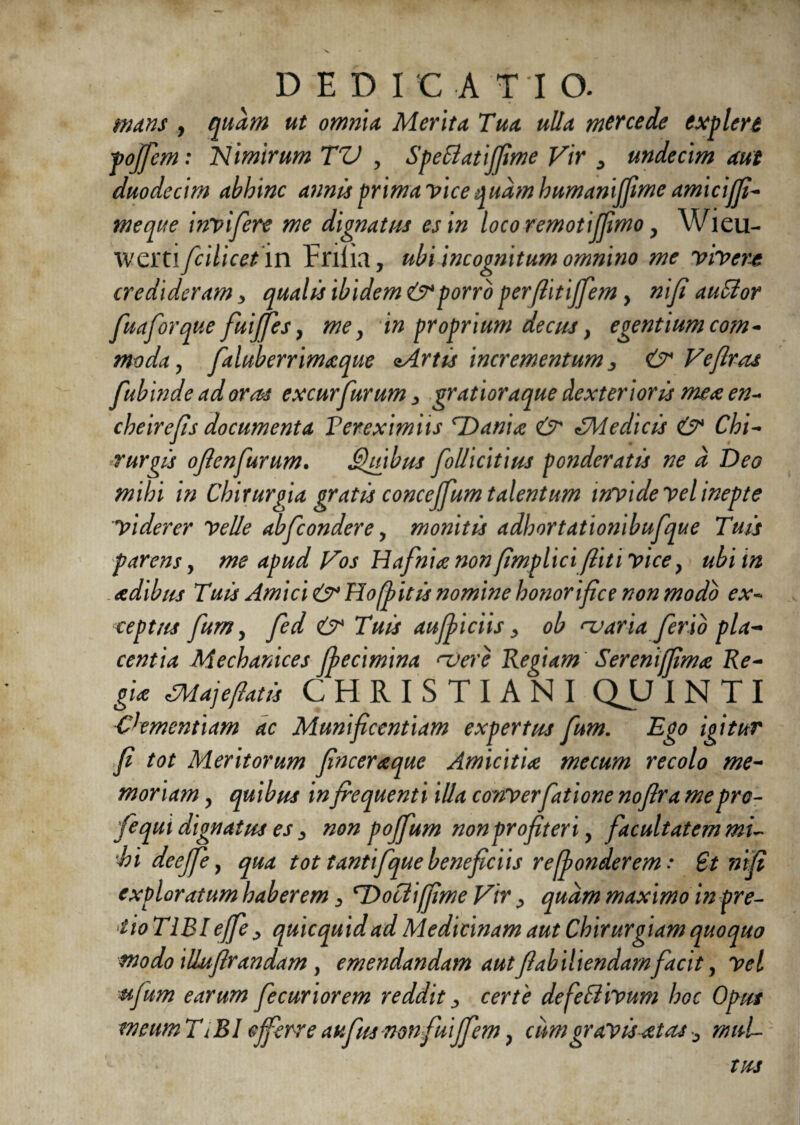 DEDICATIO.
mans , quàm ut omnia Merita Tua ulla mercede explere
possem : Nimirum TU , Spectatissime Vir , undecim aut
duodecim abhinc annis prima vice quàm humanissime amicissi-
meque invisere me dignatus es in loco remotissimo , Wieu-
werti scilicet in Frisia , ubi incognitum omnino me vivere
credideram , qualis ibidem & porrò perstitissem , nisi auctor
suasorque fuisses , me , in proprium decus , egentium com-
moda , saluberrimæque Artis incrementum , & Vestras
subinde ad oras excursurum , gratioraque dexterioris meæ en-
cheiresis documenta Pereximiis Daniæ & Medicis & Chi-
rurgis ostensurum. Quibus sollicitius ponderatis ne à Deo
mihi in Chirurgia gratis concessum talentum invide vel inepte
viderer velle abscondere , monitis adhortationibusque Tuis
parens , me apud Vos Hafniæ non simplici stiti vice , ubi in
ædibus Tuis Amici & Hospitis nomine honorifice non modò ex-
ceptus sum , sed & Tuis auspiciis , ob varia seriò pla-
centia Mechanices specimina verè Regiam Serenissimæ Re-
giæ Majestatis CHRISTIANI QUINTI
Clementiam ac Munificentiam expertus sum. Ego igitur
si tot Meritorum sinceræque Amicitiæ mecum recolo me-
moriam , quibus in frequenti illa conversatione nostra me pro-
sequi dignatus es , non possum non profiteri , facultatem mi-
hi deesse , qua tot tantisque beneficiis responderem : Et nisi
exploratum haberem , Doctissime Vir , quàm maximo in pre-
tio TIBI esse , quicquid ad Medicinam aut Chirurgiam quoquo
modo illustrandam , emendandam aut stabiliendam facit , vel
usum earum securiorem reddit , certè defectivum hoc Opus
meum TIBI offerre ausus non fuissem , cùm gravis ætas , mul-
tus